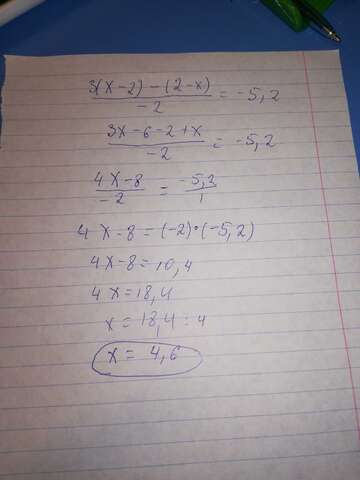 3(x-2)-(2-x)/-2 = -5,2
3x-6-2+x/-2 = -5,2
4x-8/-2 = -5,2/1
4x-8=(-2)·(-5,2)
4x-8=10,4
4x=18,4
x=18,4:4
x=4,6